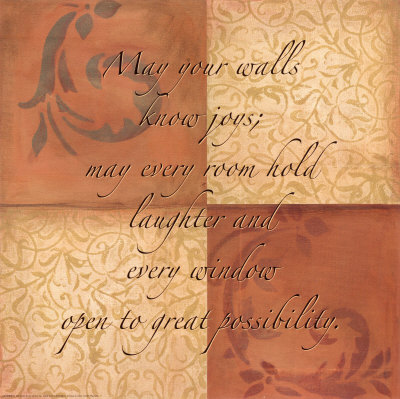 May your walls
know joys;
may every room hold
laughter and
every window
open to great possibility.